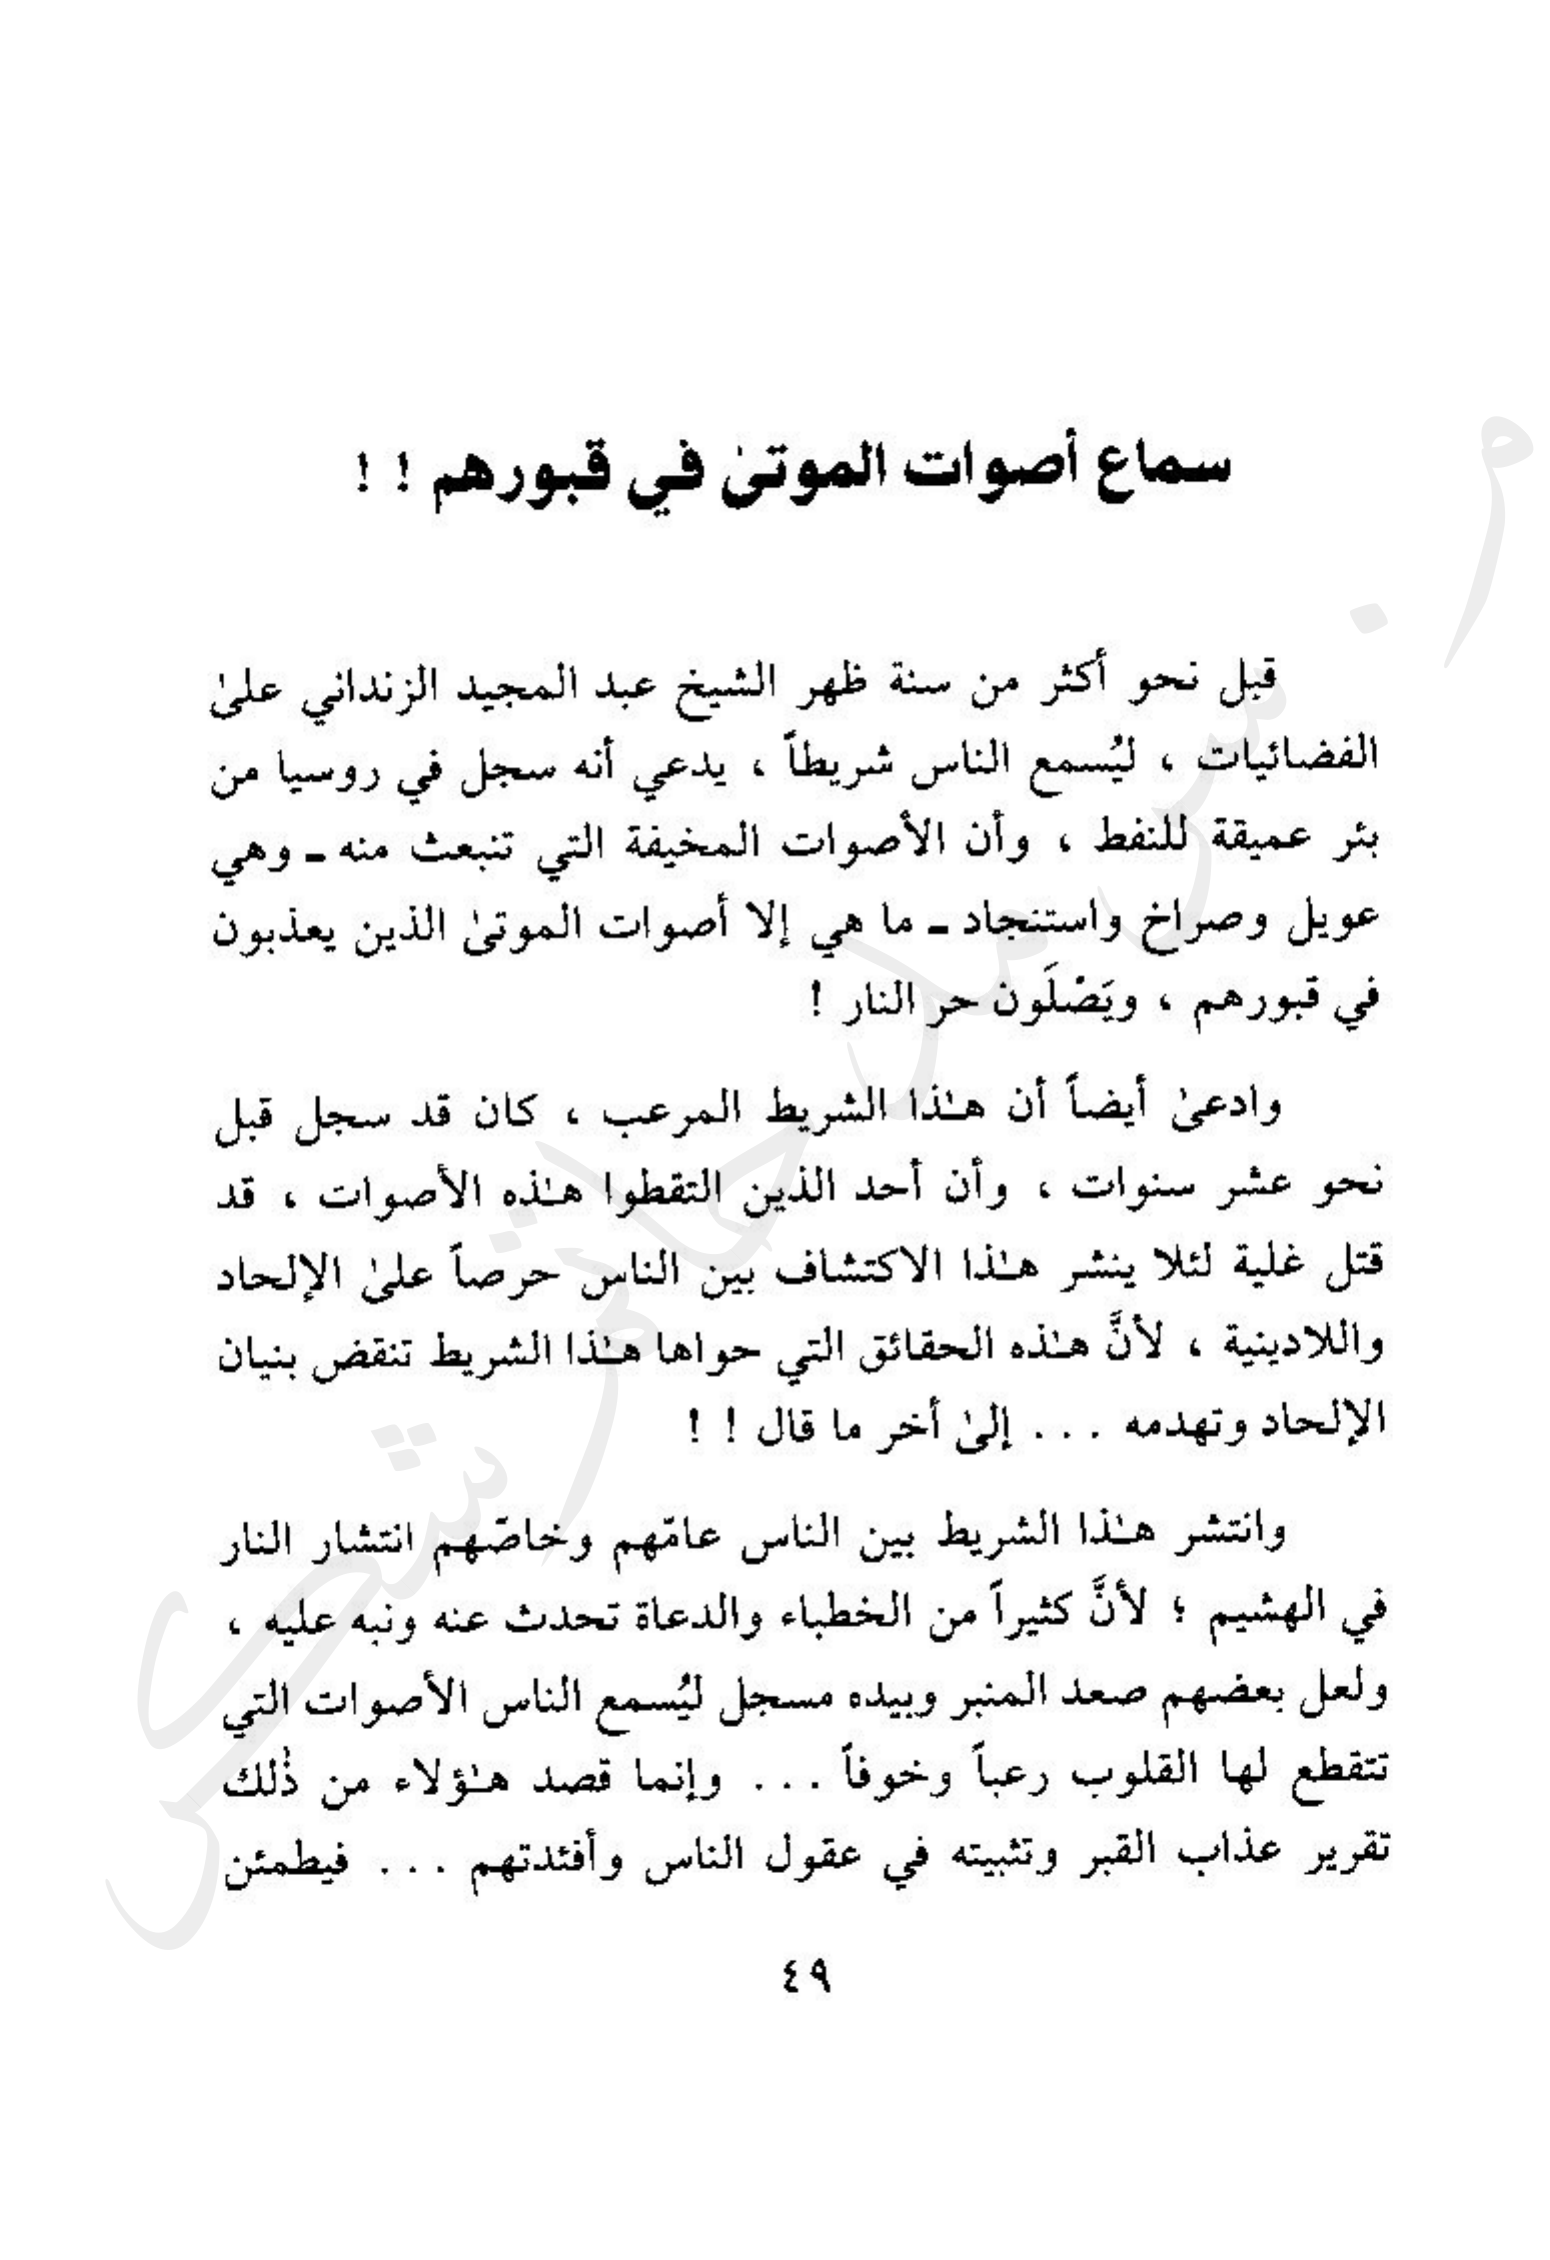 سماع أصوات الموتىٰ في قبورهم ! !
قبل نحو أكثر من سنة ظهر الشيخ عبد المجيد الزنداني علىٰ
الفضائيات ، ليُسمع الناس شريطاً ، يدعي أنه سجل في روسيا من
بئر عميقة للنفط ، وأن الأصوات المخيفة التي تنبعث منه ـ وهي
عويل وصراخ واستنجاد ـ ما هي إلا أصوات الموتىٰ الذين يعذبون
في قبورهم ، ويَصْلَون حر النار !
وادعىٰ أيضاً أن هـٰذا الشريط المرعب ، كان قد سجل قبل
نحو عشر سنوات ، وأن أحد الذين التقطوا هـٰذه الأصوات ، قد
قتل غلية لئلا ينشر هـٰذا الاكتشاف بين الناس حرصاً علىٰ الإلحاد
واللادينية ، لأنَّ هـٰذه الحقائق التي حواها هـٰذا الشريط تنقض بنيان
الإلحاد وتهدمه . . . إلىٰ أخر ما قال ! !
وانتشر هـٰذا الشريط بين الناس عامّهم وخاصّهم انتشار النار
في الهشيم ؛ لأنَّ كثيراً من الخطباء والدعاة تحدث عنه ونبه عليه ،
ولعل بعضهم صعد المنبر وبيده مسجل ليُسمع الناس الأصوات التي
تتقطع لها القلوب رعباً وخوفاً . . . وإنما قصد هـٰؤلاء من ذٰلك
تقرير عذاب القبر وتثبيته في عقول الناس وأفئدتهم . . . فيطمئن
٤٩